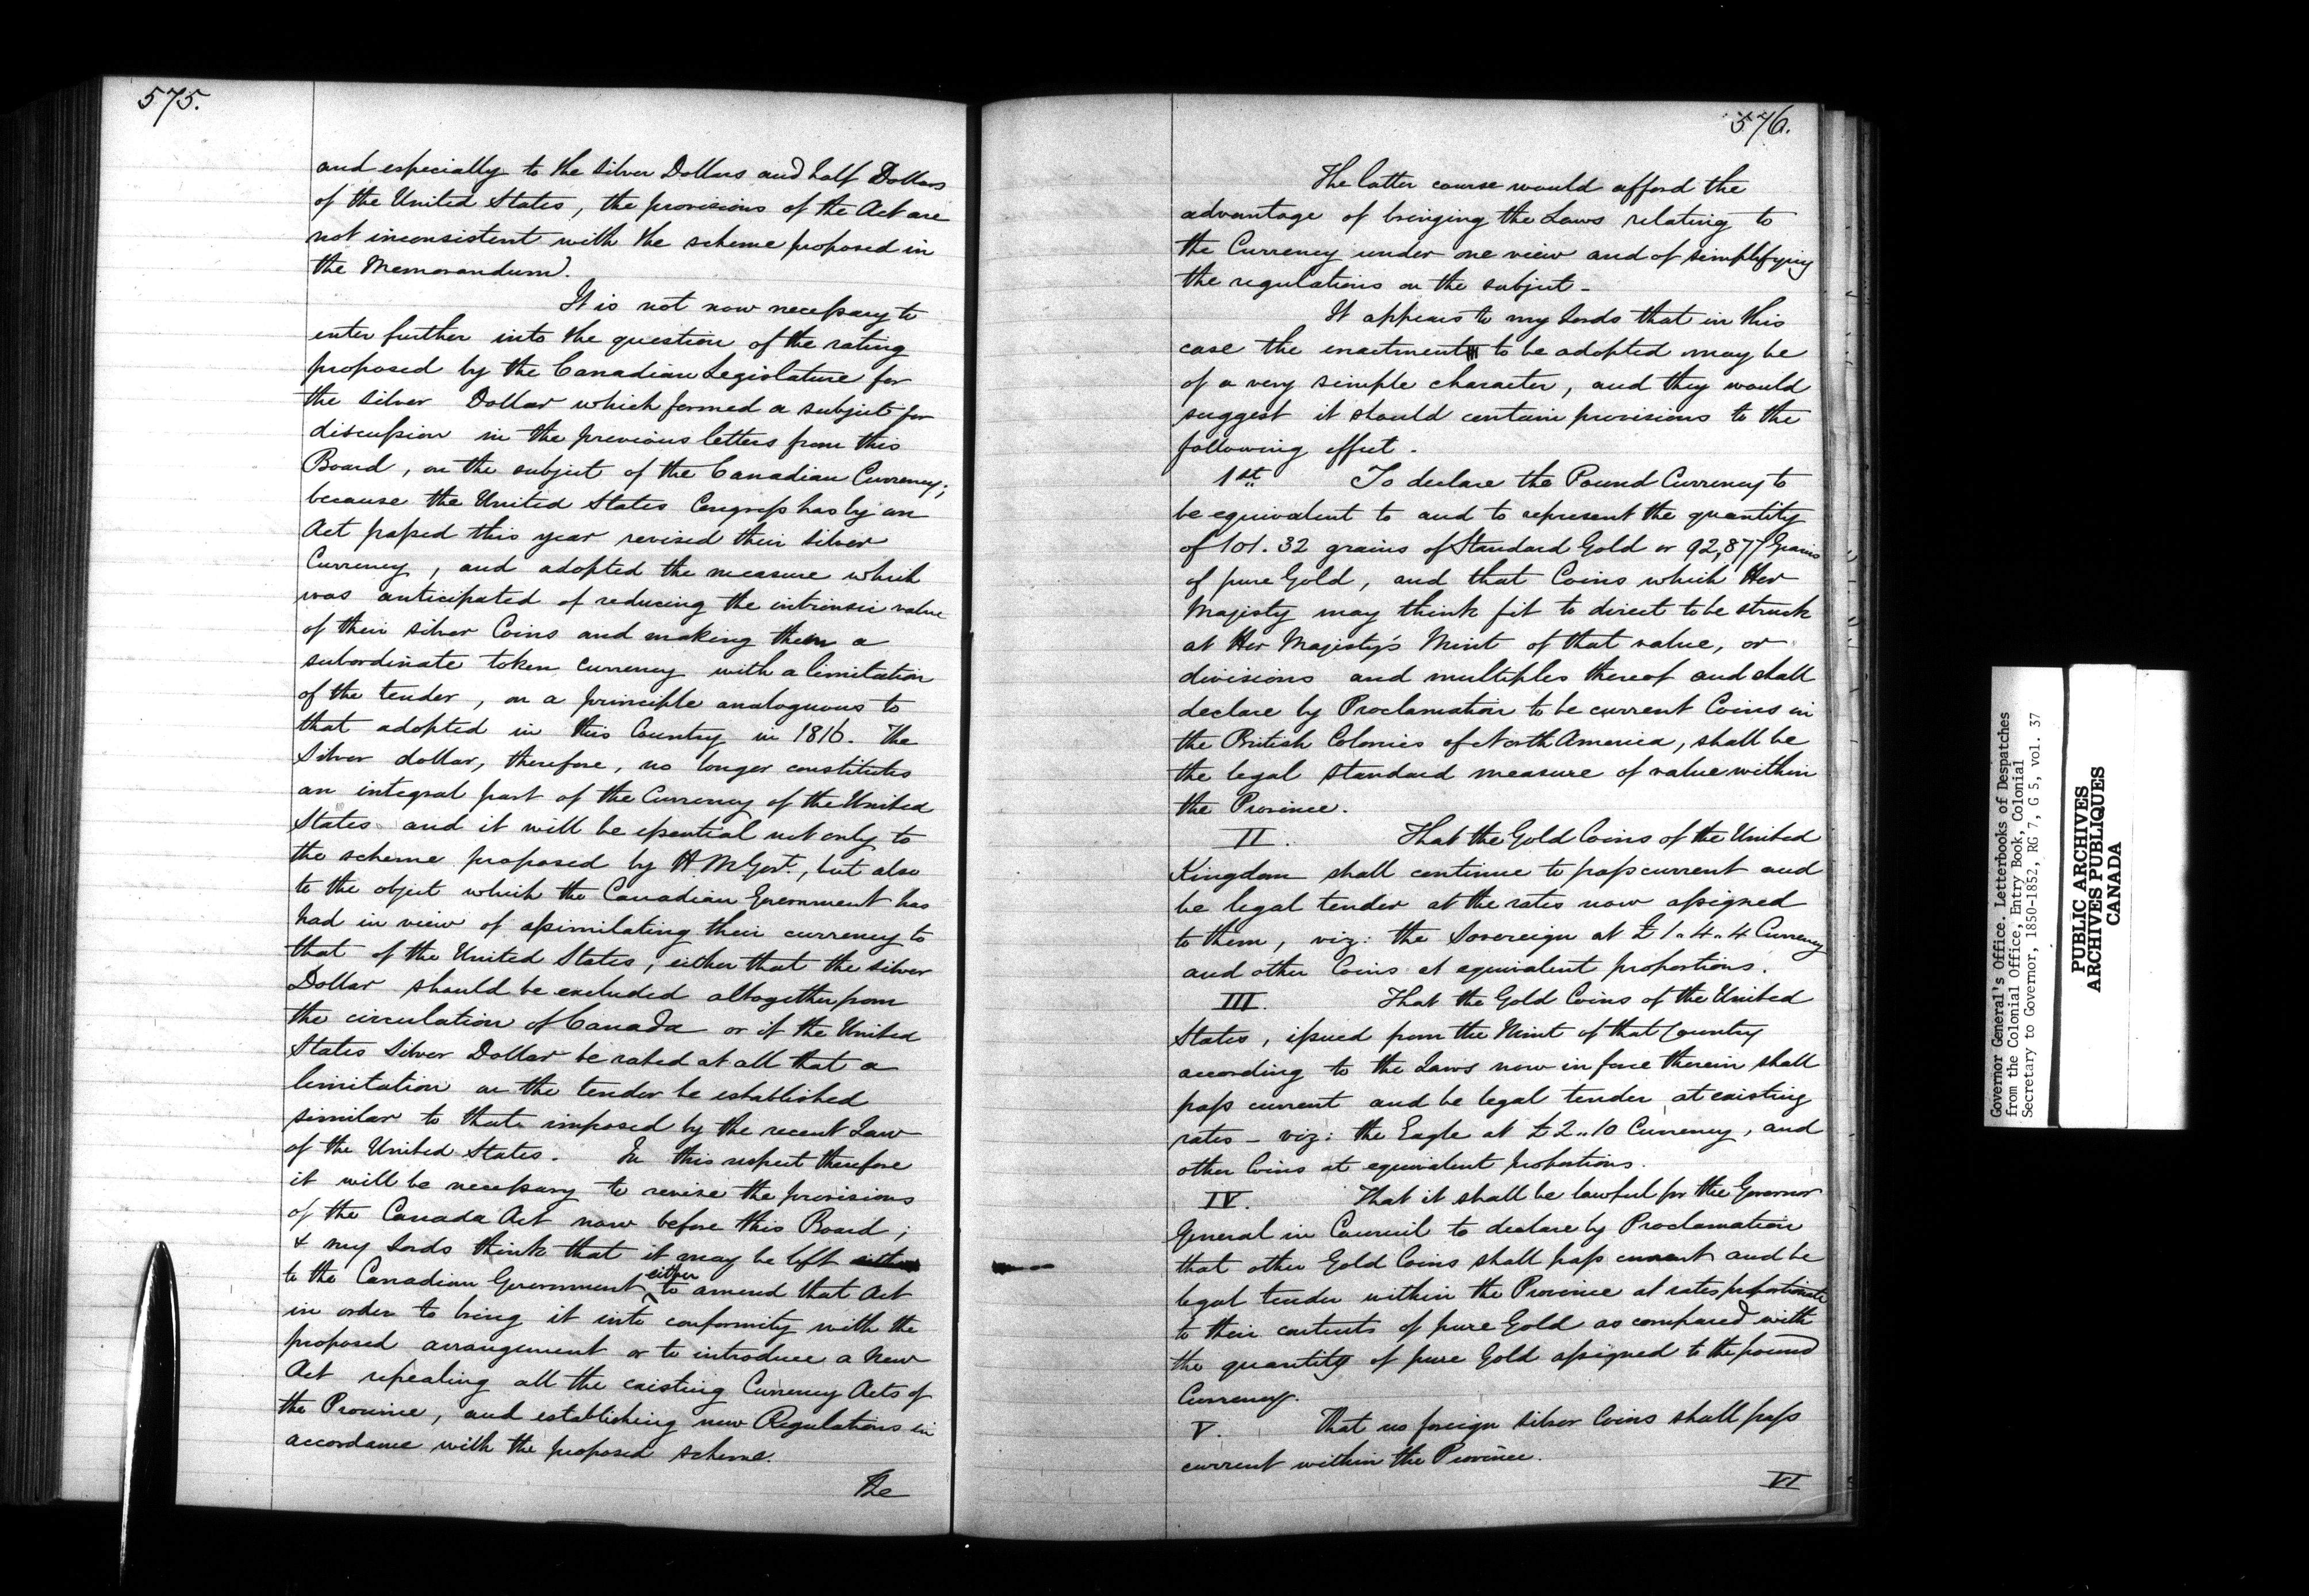 575.
and especially to the Silver Dollars and half Dollars
of the United States, the provisions of the Act are
not inconsistent with the scheme proposed in
the Memorandum.
It is not now necessary to
enter further into the question of the rating
proposed by the Canadian Legislature for
the silver Dollar which formed a subject for
discussion in the previous letters from this
Board, on the subject of the Canadian Currency;
because the United States Congress has by an
Act passed this year revised their silver
Currency, and adopted the measure which
was anticipated of reducing the intrinsic value
of their silver Coins and making them a
subordinate token currency with a limitation
of the tender, on a principle analoguous to
that adopted in this Country in 1816. The
Silver dollar, therefore, no longer constitutes
an integral part of the Currency of the United
States and it will be essential not only to
the scheme proposed by H.M Govt., but also
to the object which the Canadian Government has
had in view of assimilating their currency to
that of the United States; either that the silver
Dollar should be excluded altogether from
the circulation of Canada or if the United
States Silver Dollar be rated at all that a
limitation on the tender be established
similar to that imposed by the recent Law
of the United States. In this respect therefore
it will be necessary to revise the provisions
of the Canada Act now before this Board;
& my Lords think that it may be left either
to the Canadian Government either to amend that Act
in order to bring it into conformity with the
proposed arrangement or to introduce a new
Act repealing all the existing Currency Acts of
the Province, and establishing new Regulations in
accordance with the proposed scheme.
The
576.
The latter course would afford the
advantage of bringing the Laws relating to
the Currency under one view and of simplifying
the regulations on the subject -
It appears to my Lords that in this
case the enactment to be adopted may be
of a very simple character, and they would
suggest it should contain provisions to the
following effect.
1st To declare the Pound Currency to
be equivalent to and to represent the quantity
of 101.32 grains of Standard Gold or 92,877 Grains
of pure Gold, and that Coins which Her
Majesty may think fit to direct to be struck
at Her Majesty's Mint of that value, or
divisions and multiples thereof and shall
declare by Proclamation to be current Coins in
the British Colonies of North America, shall be
the legal standard measure of value within
the Province.
II. That the Gold Coins of the United
Kingdom shall continue to pass current and
be legal tender at the rates now assigned
to them, viz: the Sovereign at £1.4.4 Currency
and other Coins at equivalent proportions.
III. That the Gold Coins of the United
States, issued from the Mint of that Country
according to the Laws now in force therein shall
pass current and be legal tender at existing
rates - viz: the Eagle at £2..10 Currency, and
other Coins at equivalent proportions.
IV. That it shall be lawful for the Governor
General in Council to declare by Proclamation
that other Gold Coins shall pass current and be
legal tender within the Province at rates proportionate
to their contents of pure Gold as compared with
the quantity of pure Gold assigned to the pound
Currency.
V. That no foreign silver Coins shall pass
current within the Province.
VI
Governor General's Office. Letterbooks of Despatches
from the Colonial Office, Entry Book, Colonial
Secretary to Governor, 1850-1852, RG 7, G 5, vol. 37
PUBLIC ARCHIVES
ARCHIVES PUBLIQUES
CANADA